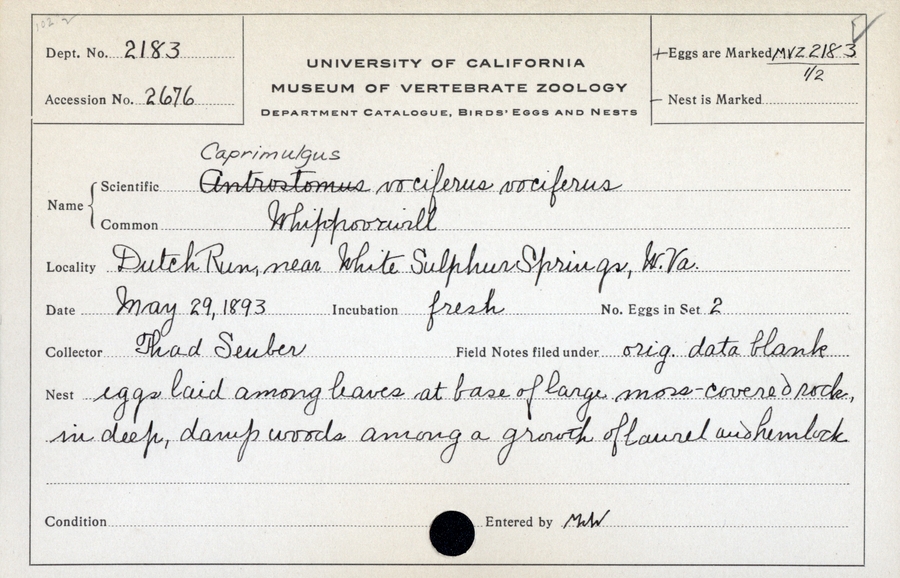 Dept. No. 2183
Accession No. 2676
UNIVERSITY OF CALIFORNIA
MUSEUM OF VERTEBRATE ZOOLOGY
DEPARTMENT CATALOGUE, BIRDS' EGGS AND NESTS
+Eggs are Marked MVZ 2183
1/2
– Nest is Marked
Caprimulgus
Name { Scientific Antrostomus vociferus vociferus
Common Whippoorwill
Locality Dutch Run, near White Sulphur Springs, W. Va.
Date May 29, 1893 Incubation fresh No. Eggs in Set 2
Collector Thad Seuber Field Notes filed under orig. data blank
Nest eggs laid among leaves at base of large moss-covered rock,
in deep, damp woods among a growth of laurel and hemlock
Condition Entered by